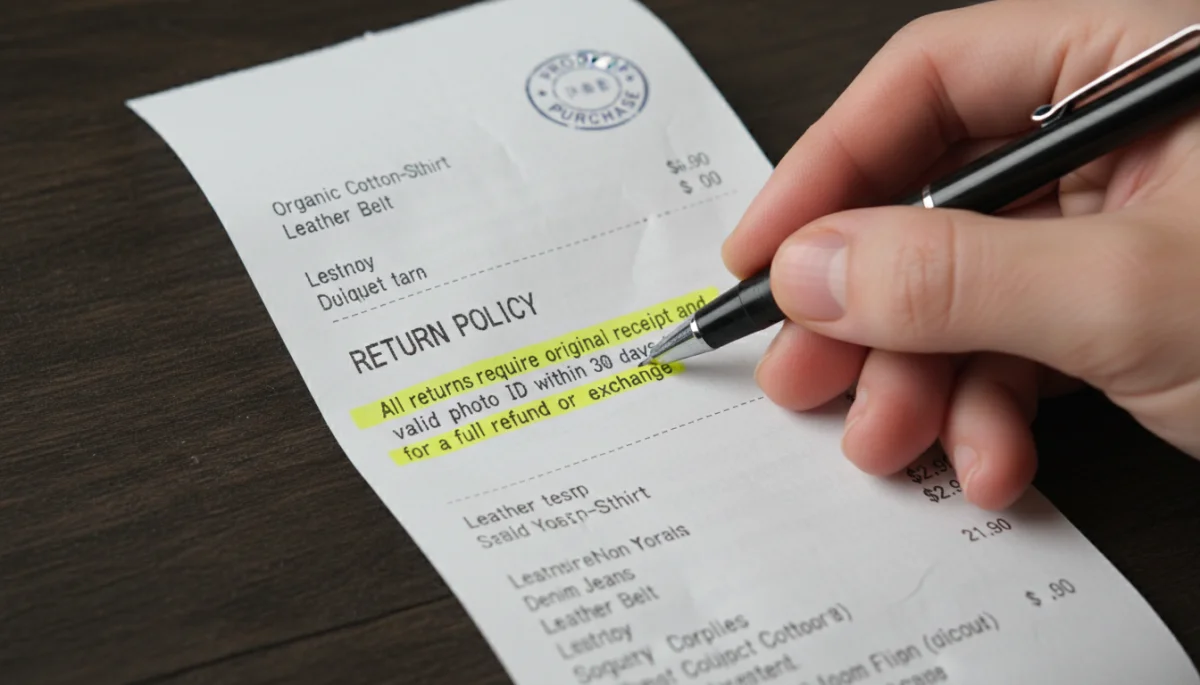 PROOF OF
PURCHASE
Organic Cotton-Sthirt $6.90
Leather Belt $ 00
Lestnoy
Duiquet tarn
RETURN POLICY
All returns require original receipt and
valid photo ID within 30 days
for a full refund or exchange
Leather tesrp
Ssald Yosrp-Sthirt
$2.9
$2.9
Yorals 21.90
Denim Jeans
Leather Belt
Lestrloy $ .90
Soquety Corplies
Coluipct
Flipn (dicout)